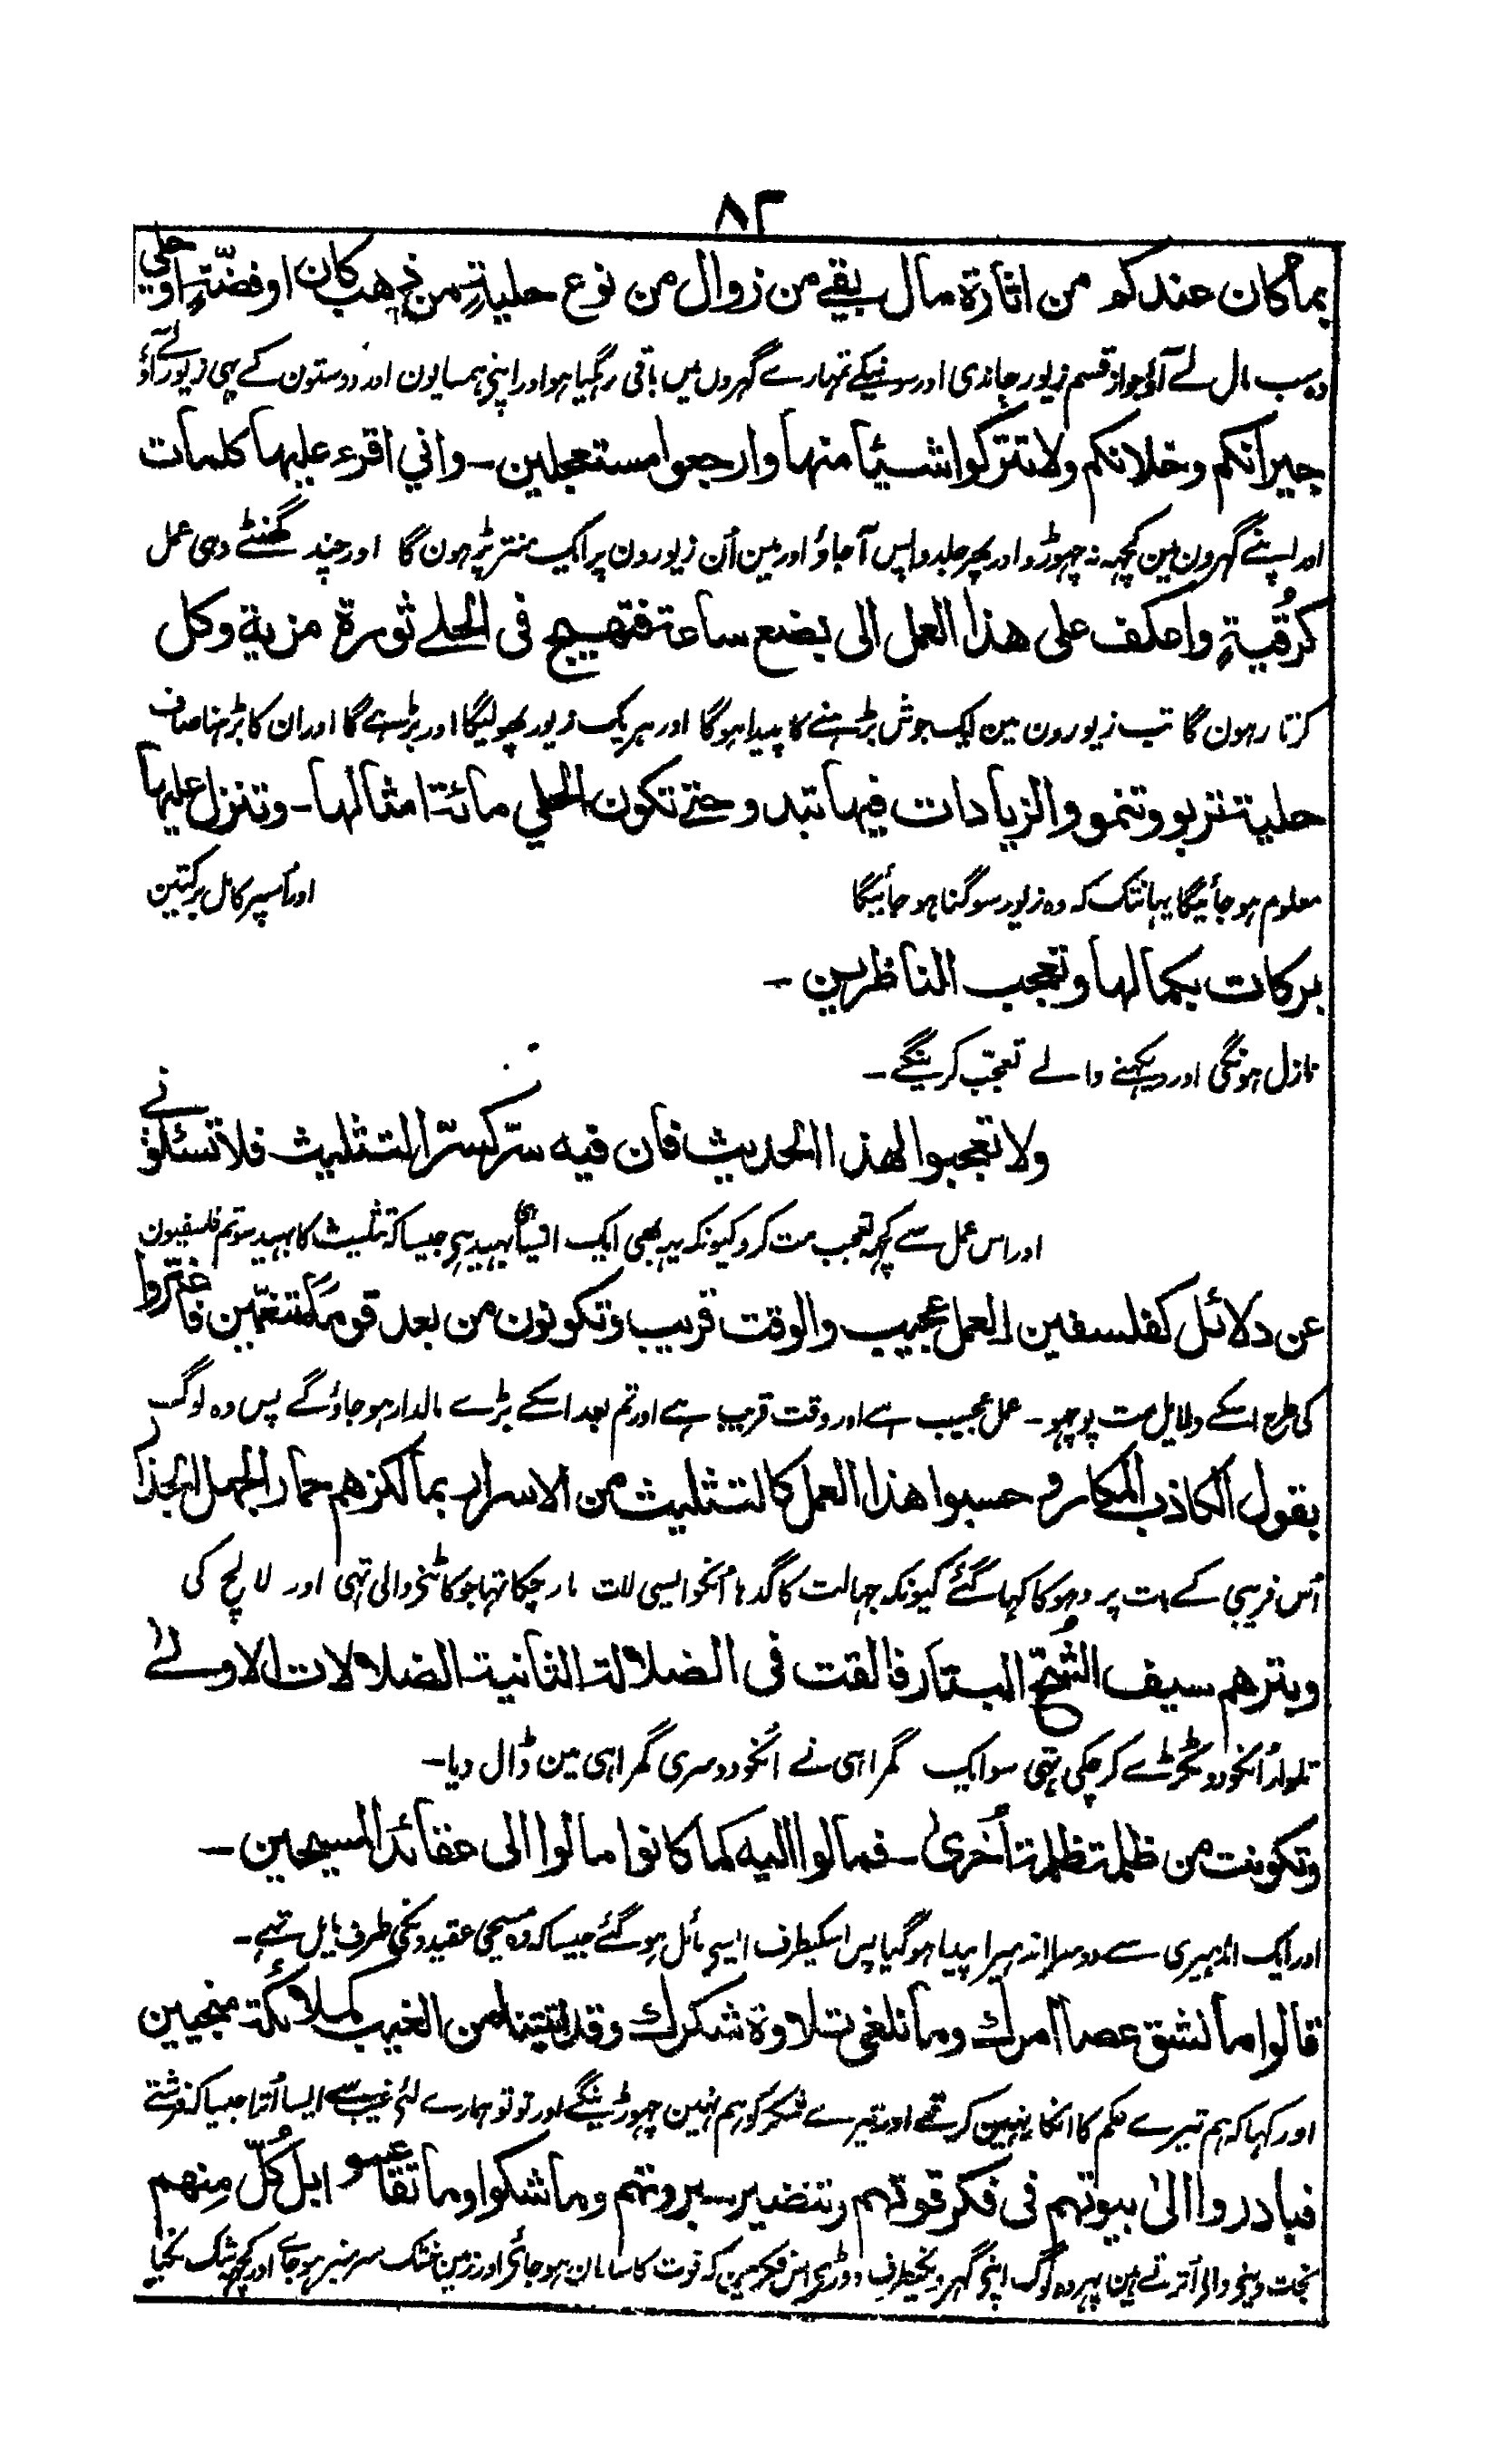 ٨٢
بما كان عندكم من اثارة مال بقي من زوال من نوع حلية من ذهب كان او فضّةٍ او حلي
وہ سب مال لے آؤ جو از قسم زیور چاندی اور سونیکے تمہارے گہروں میں باقی رہگیا ہو اور اپنے ہمسایون اور دوستون کے بھی زیور لے آؤ
جيرانكم وخلانكم ولا تتركوا شيئا منها وارجعوا مستعجلين ۔ واني اقرء عليها كلمات
اور اپنے گہرون مین کچہہ نہ چہوڑو اور پھر جلد واپس آجاؤ اور مین اُن زیورون پر ایک منتر پڑہون گا اور چند گھنٹے وہی عمل
كرُقيةٍ واعكف على هذا العمل الى بضع ساعة فتهيج فى الحلے ثورة مزية وكل
کرتا رہون گا تب زیورون مین ایک جوش بڑہنے کا پیدا ہوگا اور ہر یک زیور پھولیگا اور بڑہے گا اور ان کا بڑہنا صاف
حلية تربو وتنمو والزيادات فيها تبدو حتے تكون الحلي مائة امثالها ۔ وتنزل عليها
معلوم ہو جائیگا یہانتک کہ وہ زیور سو گنا ہو جائیگا اور اُسپر کامل برکتین
بركات بكمالها وتعجب الناظرين ۔
نازل ہونگی اور دیکہنے والے تعجّب کرینگے ۔
ولا تعجبوا لهذا الحديث فان فيه سرّ كسرّ التثليث فلا تسئلوني
اور اس عمل سے کچہہ تعجب مت کرو کیونکہ یہ بھی ایک ایسا ہی بہید ہے جیسا کہ تثلیث کا بہید سو تم فلسفیون
عن دلائل كفلسفين العمل عجيب والوقت قريب وتكونون من بعد قوما متنعّمين فاغترّوا
کی طرح اسکے دلایل مت پوچہو ۔ عمل عجیب ہے اور وقت قریب ہے اور تم بعد اسکے بڑے مالدار ہو جاؤ گے پس وہ لوگ
بقول الكاذب المكار و حسبوا هذا العمل كالتثليث من الاسرار بما لكزهم حمار الجهل الجذار
اُس فریبی کے بات پر دہوکا کہا گئے کیونکہ جہالت کا گدہا اُنکو ایسی لات مار چکا تہا جو کاٹنے والی تہی اور لالچ کی
وبترهم سيف الشُحّ البتار فالقت فى الضلالة الثانية الضلالات الاولےٰ
تلوار اُنکو دو ٹکڑے کر چکی تہی سو ایک گمراہی نے انکو دوسری گمراہی مین ڈال دیا ۔
وتكونت من ظلمة ظلمة اُخرىٰ ۔ فمالوا اليه كما كانوا مالوا الى عقائد المسيحين ۔
اور ایک اندہیری سے دوسرا اندہیرا پیدا ہو گیا پس اسکیطرف ایسے مائل ہو گئے جیسا کہ وہ مسیحی عقیدونکی طرف مایل تہے ۔
قالوا ما نشق عصا امرك وما نلغى تلاوة شكرك وقد اتيتنا من الغيب كملائكة منجيين
اور کہا کہ ہم تیرے حکم کا انکار نہین کرتے اور تیرے شکر کو ہم نہین چہوڑینگے اور تو تو ہمارے لئے غیب سے ایسا اُترا جیسا کہ فرشتے
فبادروا الىٰ بيوتهم فى فكر قوتهم وتنضير سبروتهم وما شكوا وما تقاعسوا بل كُلّ منهم
نجات دینے والے اُترتے ہین پہر وہ لوگ اپنے گہرونکیطرف دوڑے اس فکر مین کہ قوت کا سامان ہو جائے اور زمین خشک سرسبز ہو جاے اور کچہہ شک نکیا